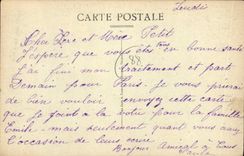 Jeudi
CARTE POSTALE
Cher Père et Mère Petit
J'espère que vous êtes tous en bonne santé
88
J'ai fini mon traitement et part
Demain pour Paris. Je vous prierai
de bien vouloir envoyer cette carte
que je joint à la votre pour la famille
Emile mais seulement quand vous aurez
l'occasion de leurs écrire
Bonjour Amical à tous